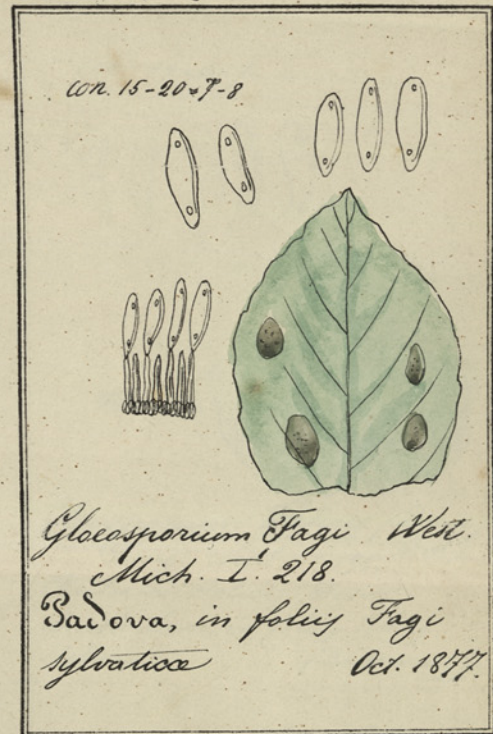 con. 15-20=7-8
Gloeosporium Fagi West.
Mich. I. 218.
Padova, in foliis Fagi
sylvaticæ Oct. 1877.